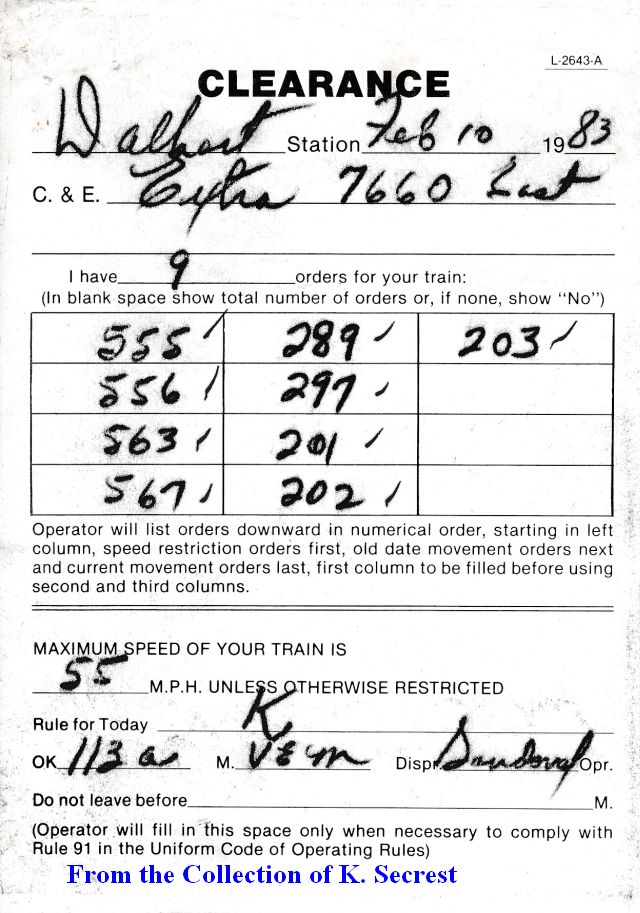 L-2643-A
CLEARANCE
Dalhart Station Feb 10 1983
C. & E. Extra 7660 East
I have 9 orders for your train:
(In blank space show total number of orders or, if none, show "No")
555 / 289 / 203 /
556 / 297 /
563 / 201 /
567 / 202 /
Operator will list orders downward in numerical order, starting in left
column, speed restriction orders first, old date movement orders next
and current movement orders last, first column to be filled before using
second and third columns.
MAXIMUM SPEED OF YOUR TRAIN IS
55 M.P.H. UNLESS OTHERWISE RESTRICTED
Rule for Today K
OK 113 a M. VEM Dispr. Sandoval Opr.
Do not leave before M.
(Operator will fill in this space only when necessary to comply with
Rule 91 in the Uniform Code of Operating Rules)
From the Collection of K. Secrest